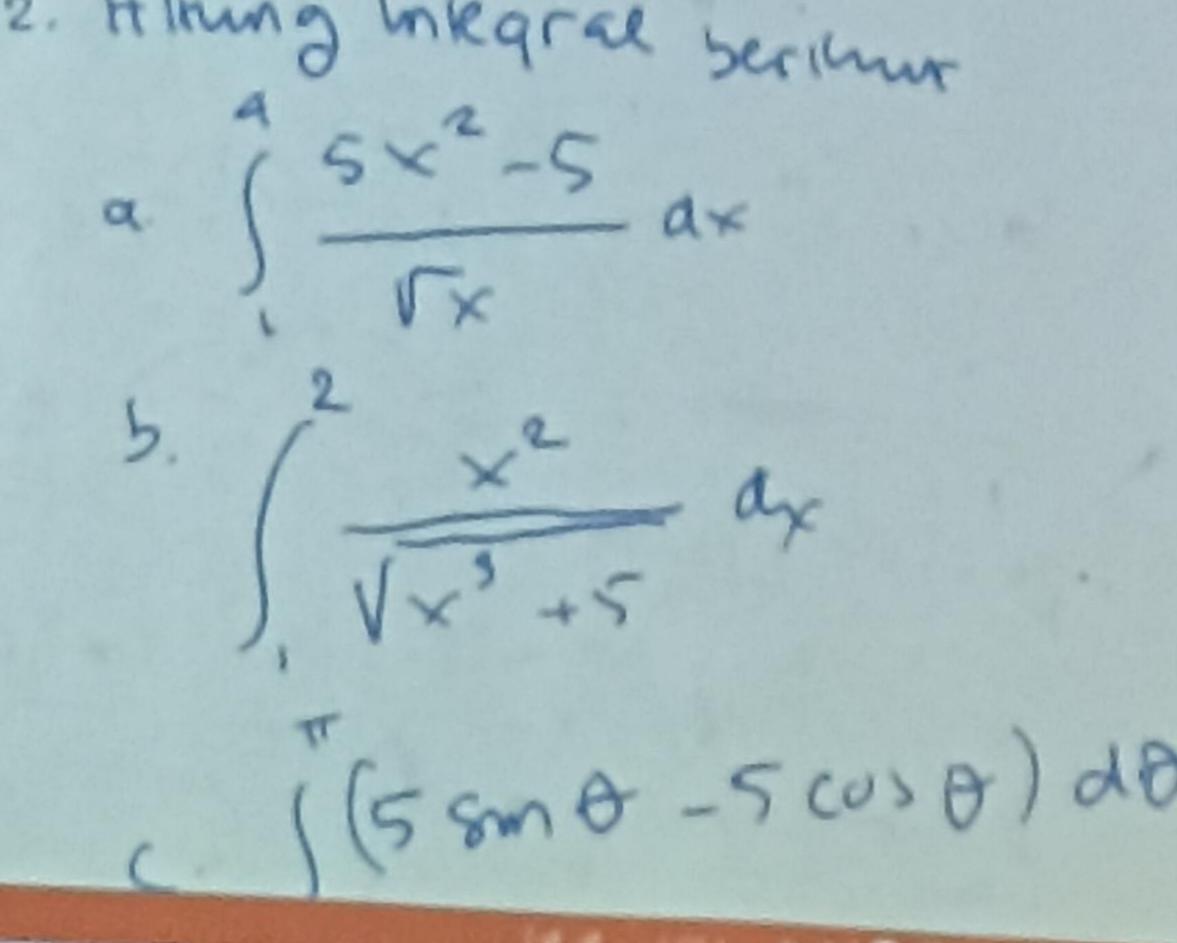 2. Hitung integral berikut
a. ∫₁⁴ (5x² - 5)/√x dx
b. ∫₁² x²/√(x³ + 5) dx
c. ∫^π (5 sin θ - 5 cos θ) dθ